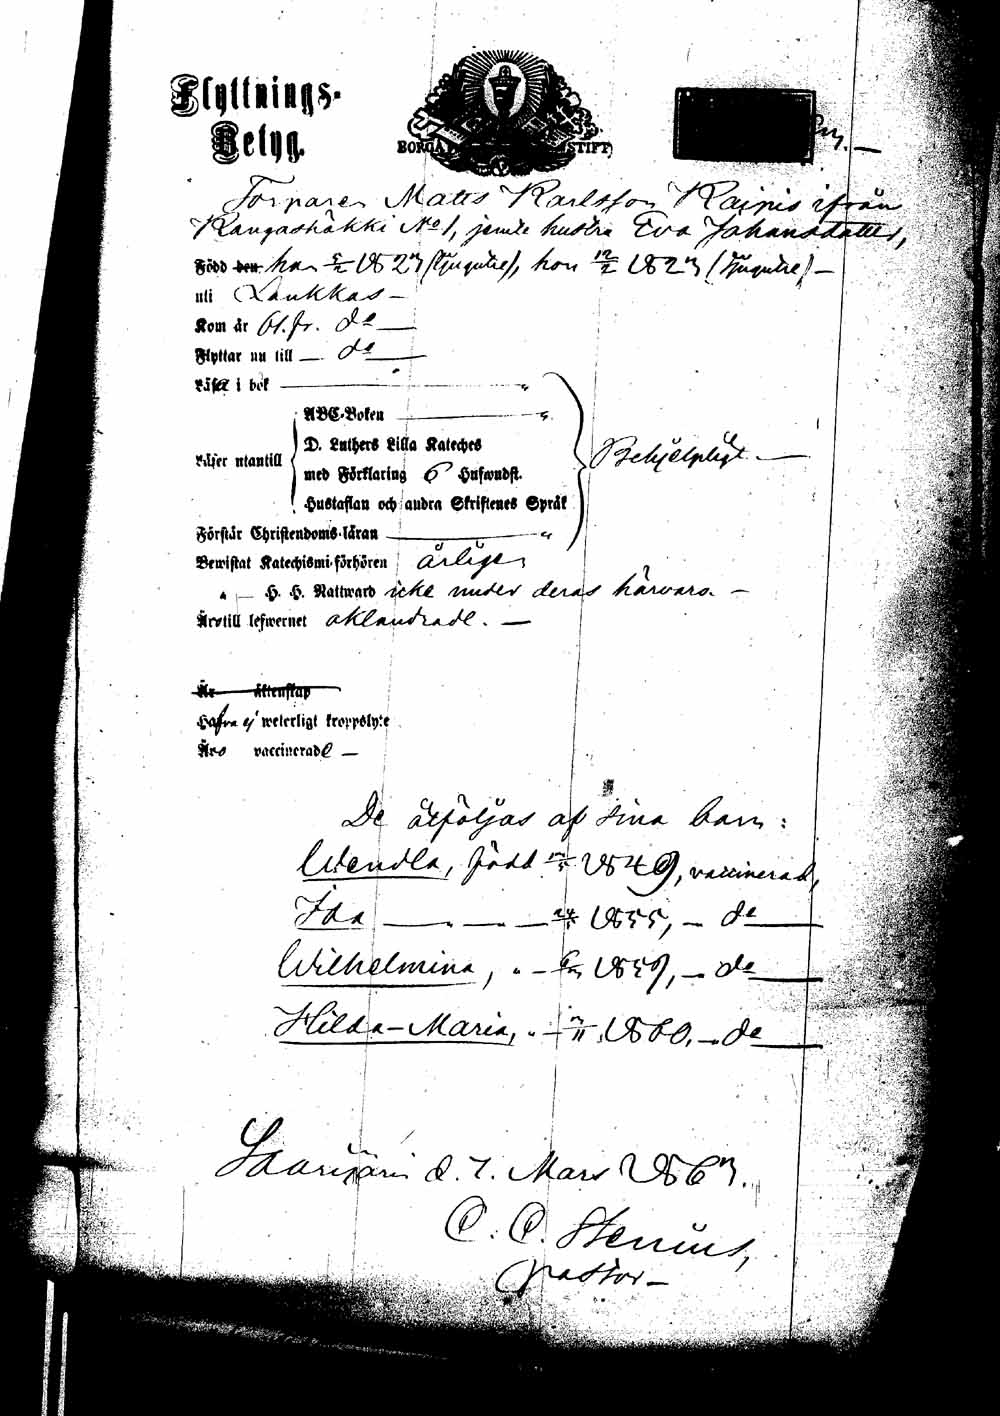 Flyttnings-
Betyg.
BORGÅ STIFT
Torparen Matts Karlsson Kainis ifrån
Kangashäkki No 1, jemte hustru Eva Johansdotter,
Född den han 5/2 1823 (tjugutre), hon 12/2 1823 (tjugutre) –
uti Laukkas –
Kom år 61. fr. do —
Flyttar nu till — do —
Läser i bok — "
ABC-Boken — "
D. Luthers Lilla Kateches
Läser utantill
med Förklaring 6 Hufwudst.
Behjelpligt. —
Hustaflan och andra Skriftenes Språk
Förstår Christendoms-läran — "
Bewistat Katechismi-förhören årligen
" — H. H. Nattward icke under deras härvaro. –
Äro till lefwernet oklandrade. —
Är äktenskap
Hafva ej weterligt kroppslyte
Äro vaccinerade —
De åtföljas af sina barn:
Wendla, född 1849, vaccinerad,
Ida — " — " — 1855, — do —
Wilhelmina, " — 1857, — do —
Hilda-Maria, " — 3/11 1860. — do —
Saarijärvi d. 7. Mars 1863.
C. C. Stenius,
pastor –